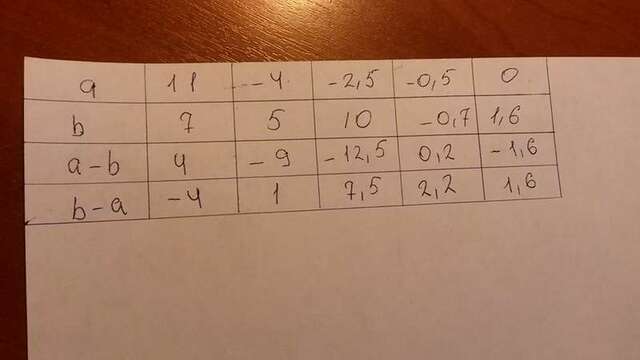 a 11 -4 -2,5 -0,5 0
b 7 5 10 -0,7 1,6
a-b 4 -9 -12,5 0,2 -1,6
b-a -4 1 7,5 2,2 1,6